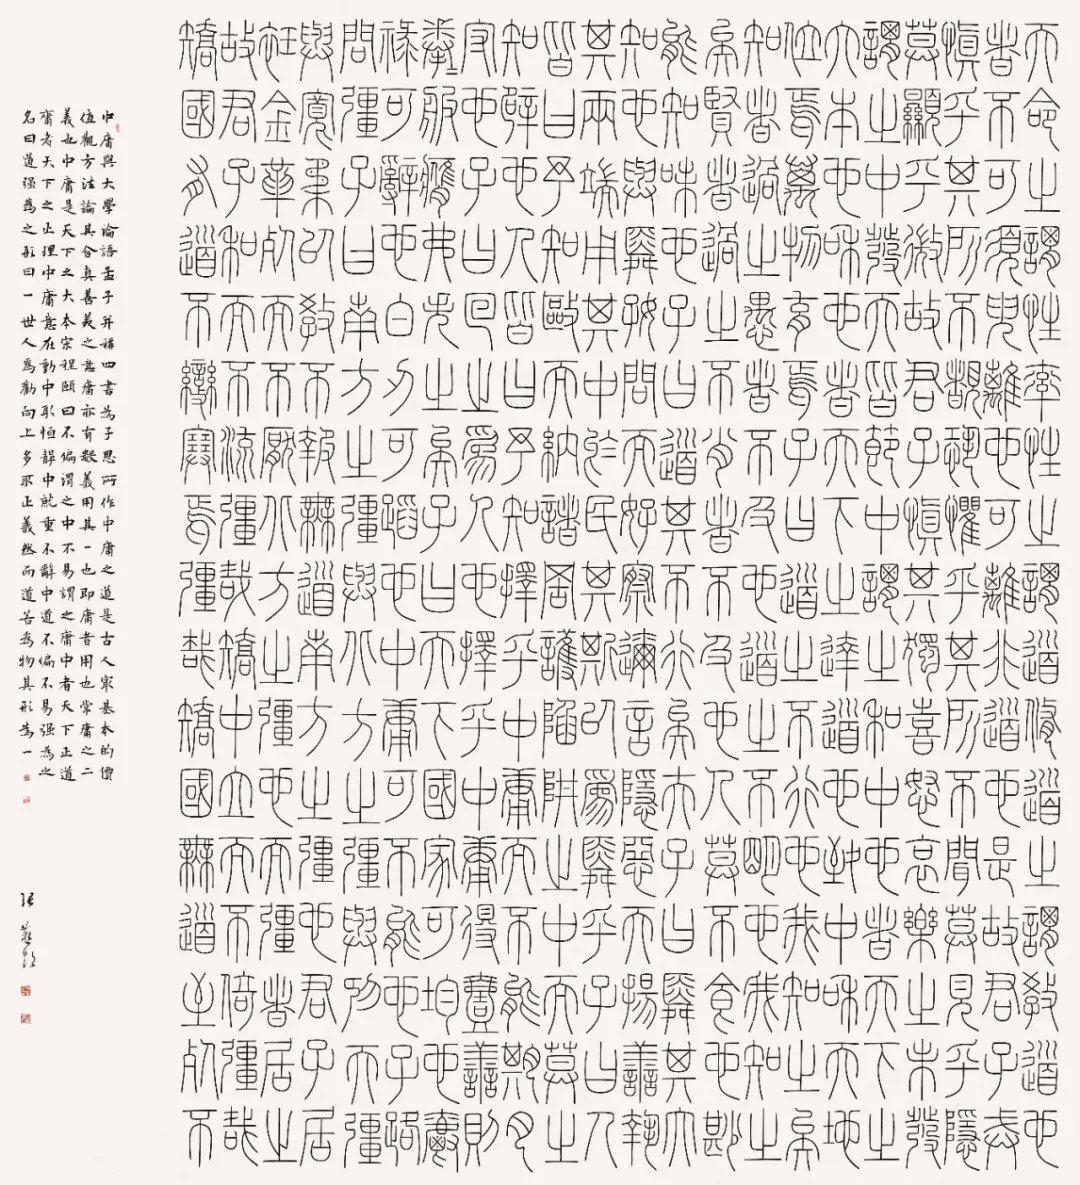 天命之謂性率性之謂道修道之謂教道也
者不可須臾離也可離非道也是故君子戒
慎乎其所不睹恐懼乎其所不聞莫見乎隱
莫顯乎微故君子慎其獨喜怒哀樂之未發
謂之中發而皆中節謂之和中也者天下之
大本也和也者天下之達道也致中和天地
位焉萬物育焉子曰道之不行也我知之矣
知者過之愚者不及也道之不明也我知之
矣賢者過之不肖者不及也人莫不食也尟
能知味也子曰道其不行矣夫子曰舜其大
知也與舜好問而好察邇言隱惡而揚善執
其兩端用其中於民其斯以為舜乎子曰人
皆曰予知驅而納諸罟擭陷阱之中而莫之
知辟也人皆曰予知擇乎中庸而不能期月
守也子曰回之為人也擇乎中庸得壹善則
拳拳服膺弗失之矣子曰天下國家可均也爵
祿可辭也白刃可蹈也中庸不可能也子路
問彊子曰南方之彊與北方之彊與抑而彊
與寬柔以教不報無道南方之彊也君子居
衽金革死而不厭北方之彊也而彊者居之
故君子和而不流彊哉矯中立而不倚彊哉
矯國有道不變塞焉彊哉矯國無道至死不
中庸與大學論語孟子并稱四書為子思所作中庸之道是古人最基本的價
值觀方法論其含真善美之意庸亦有疑義用其一也即庸者用也常庸之二
義也中庸是天下之大本宋程頤曰不偏謂之中不易謂之庸中者天下正道
庸者天下之正理中庸意在動中取恒靜中就重不辭中道不偏不易强為之
名曰道强為之形曰一世人為勸向上多取正義然而道若為物具形為一